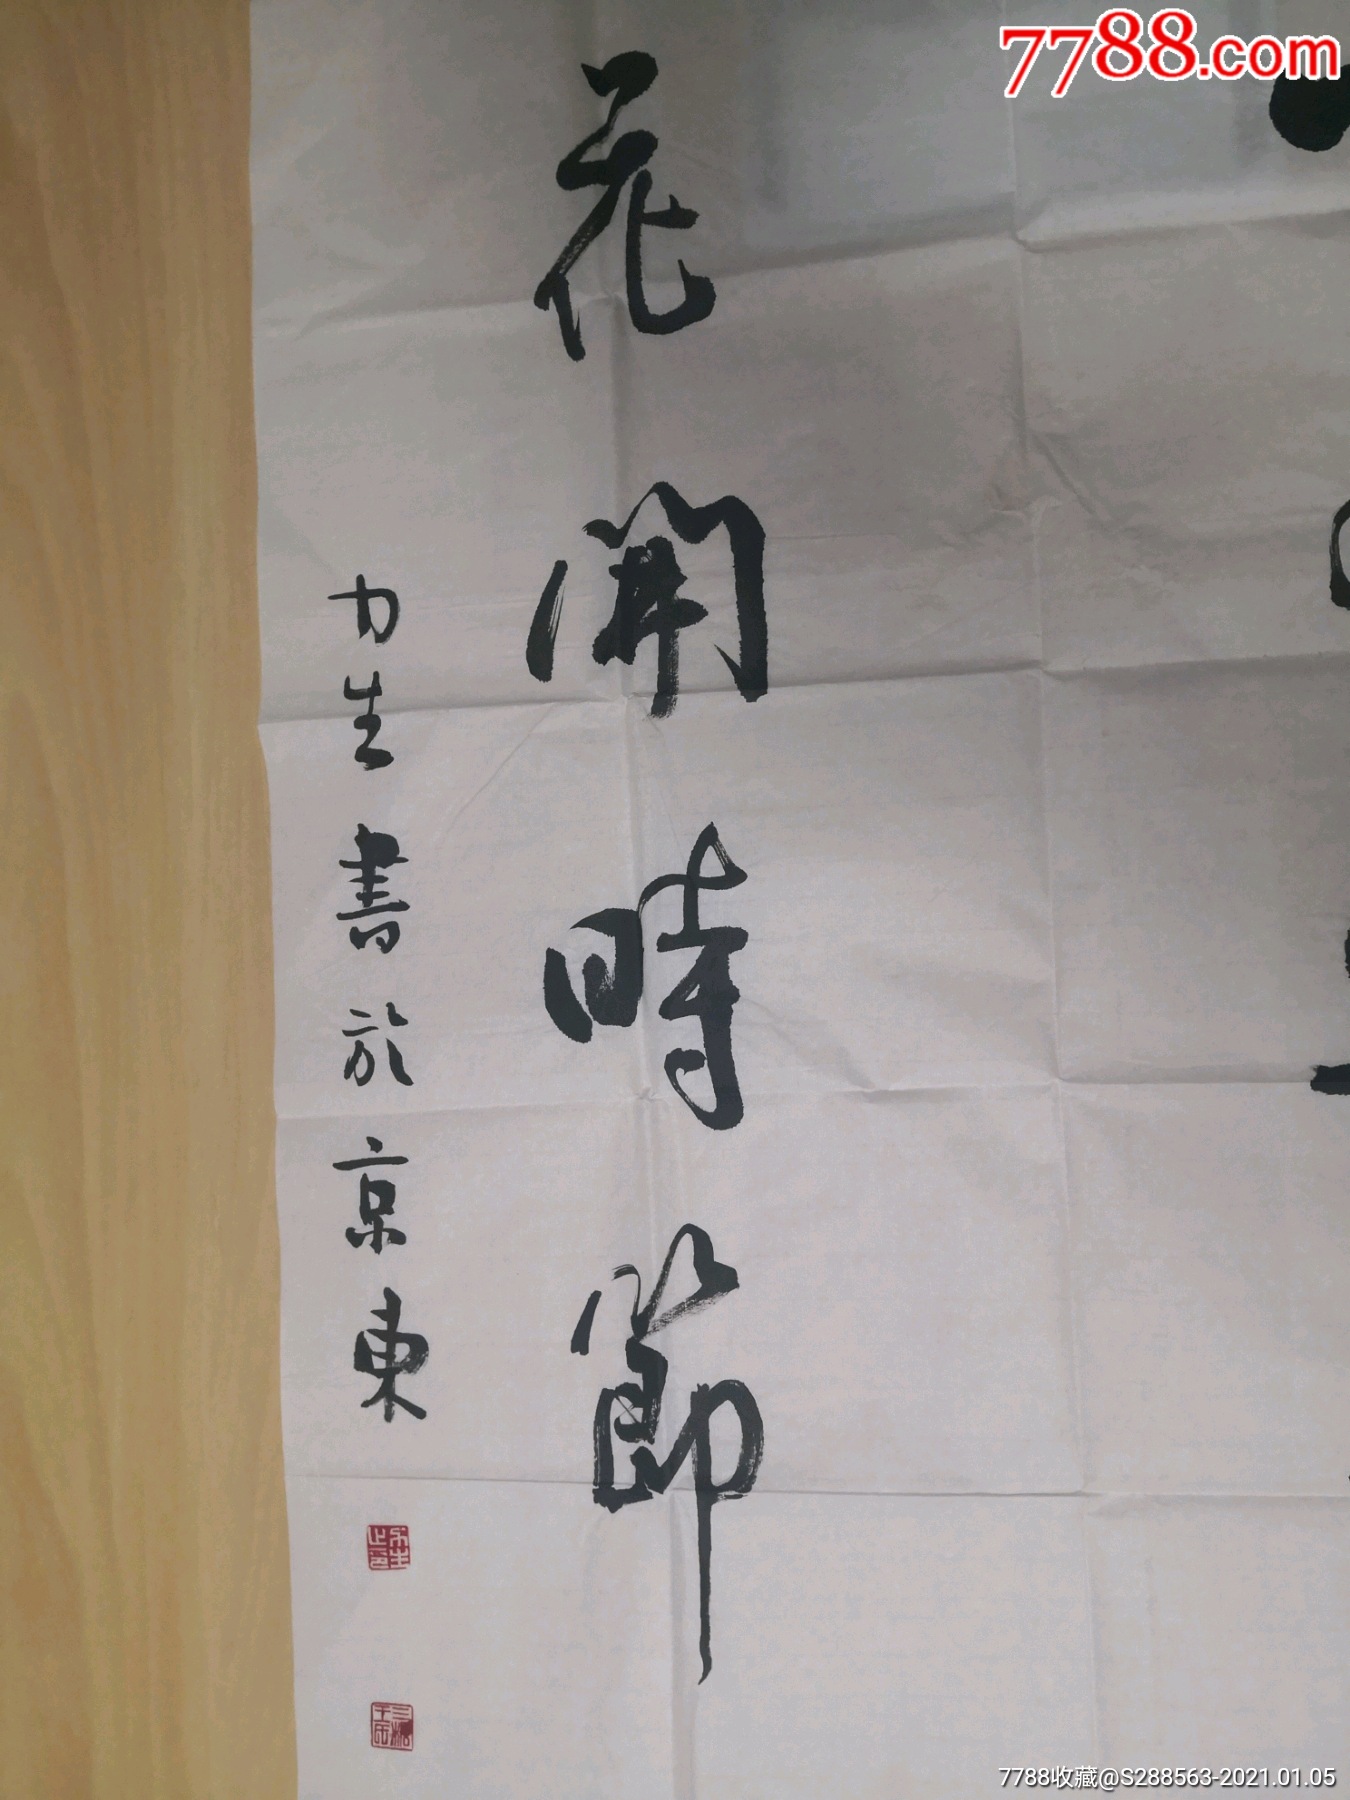 7788.com
花開時節
力生書於京東
7788收藏@S288563-2021.01.05